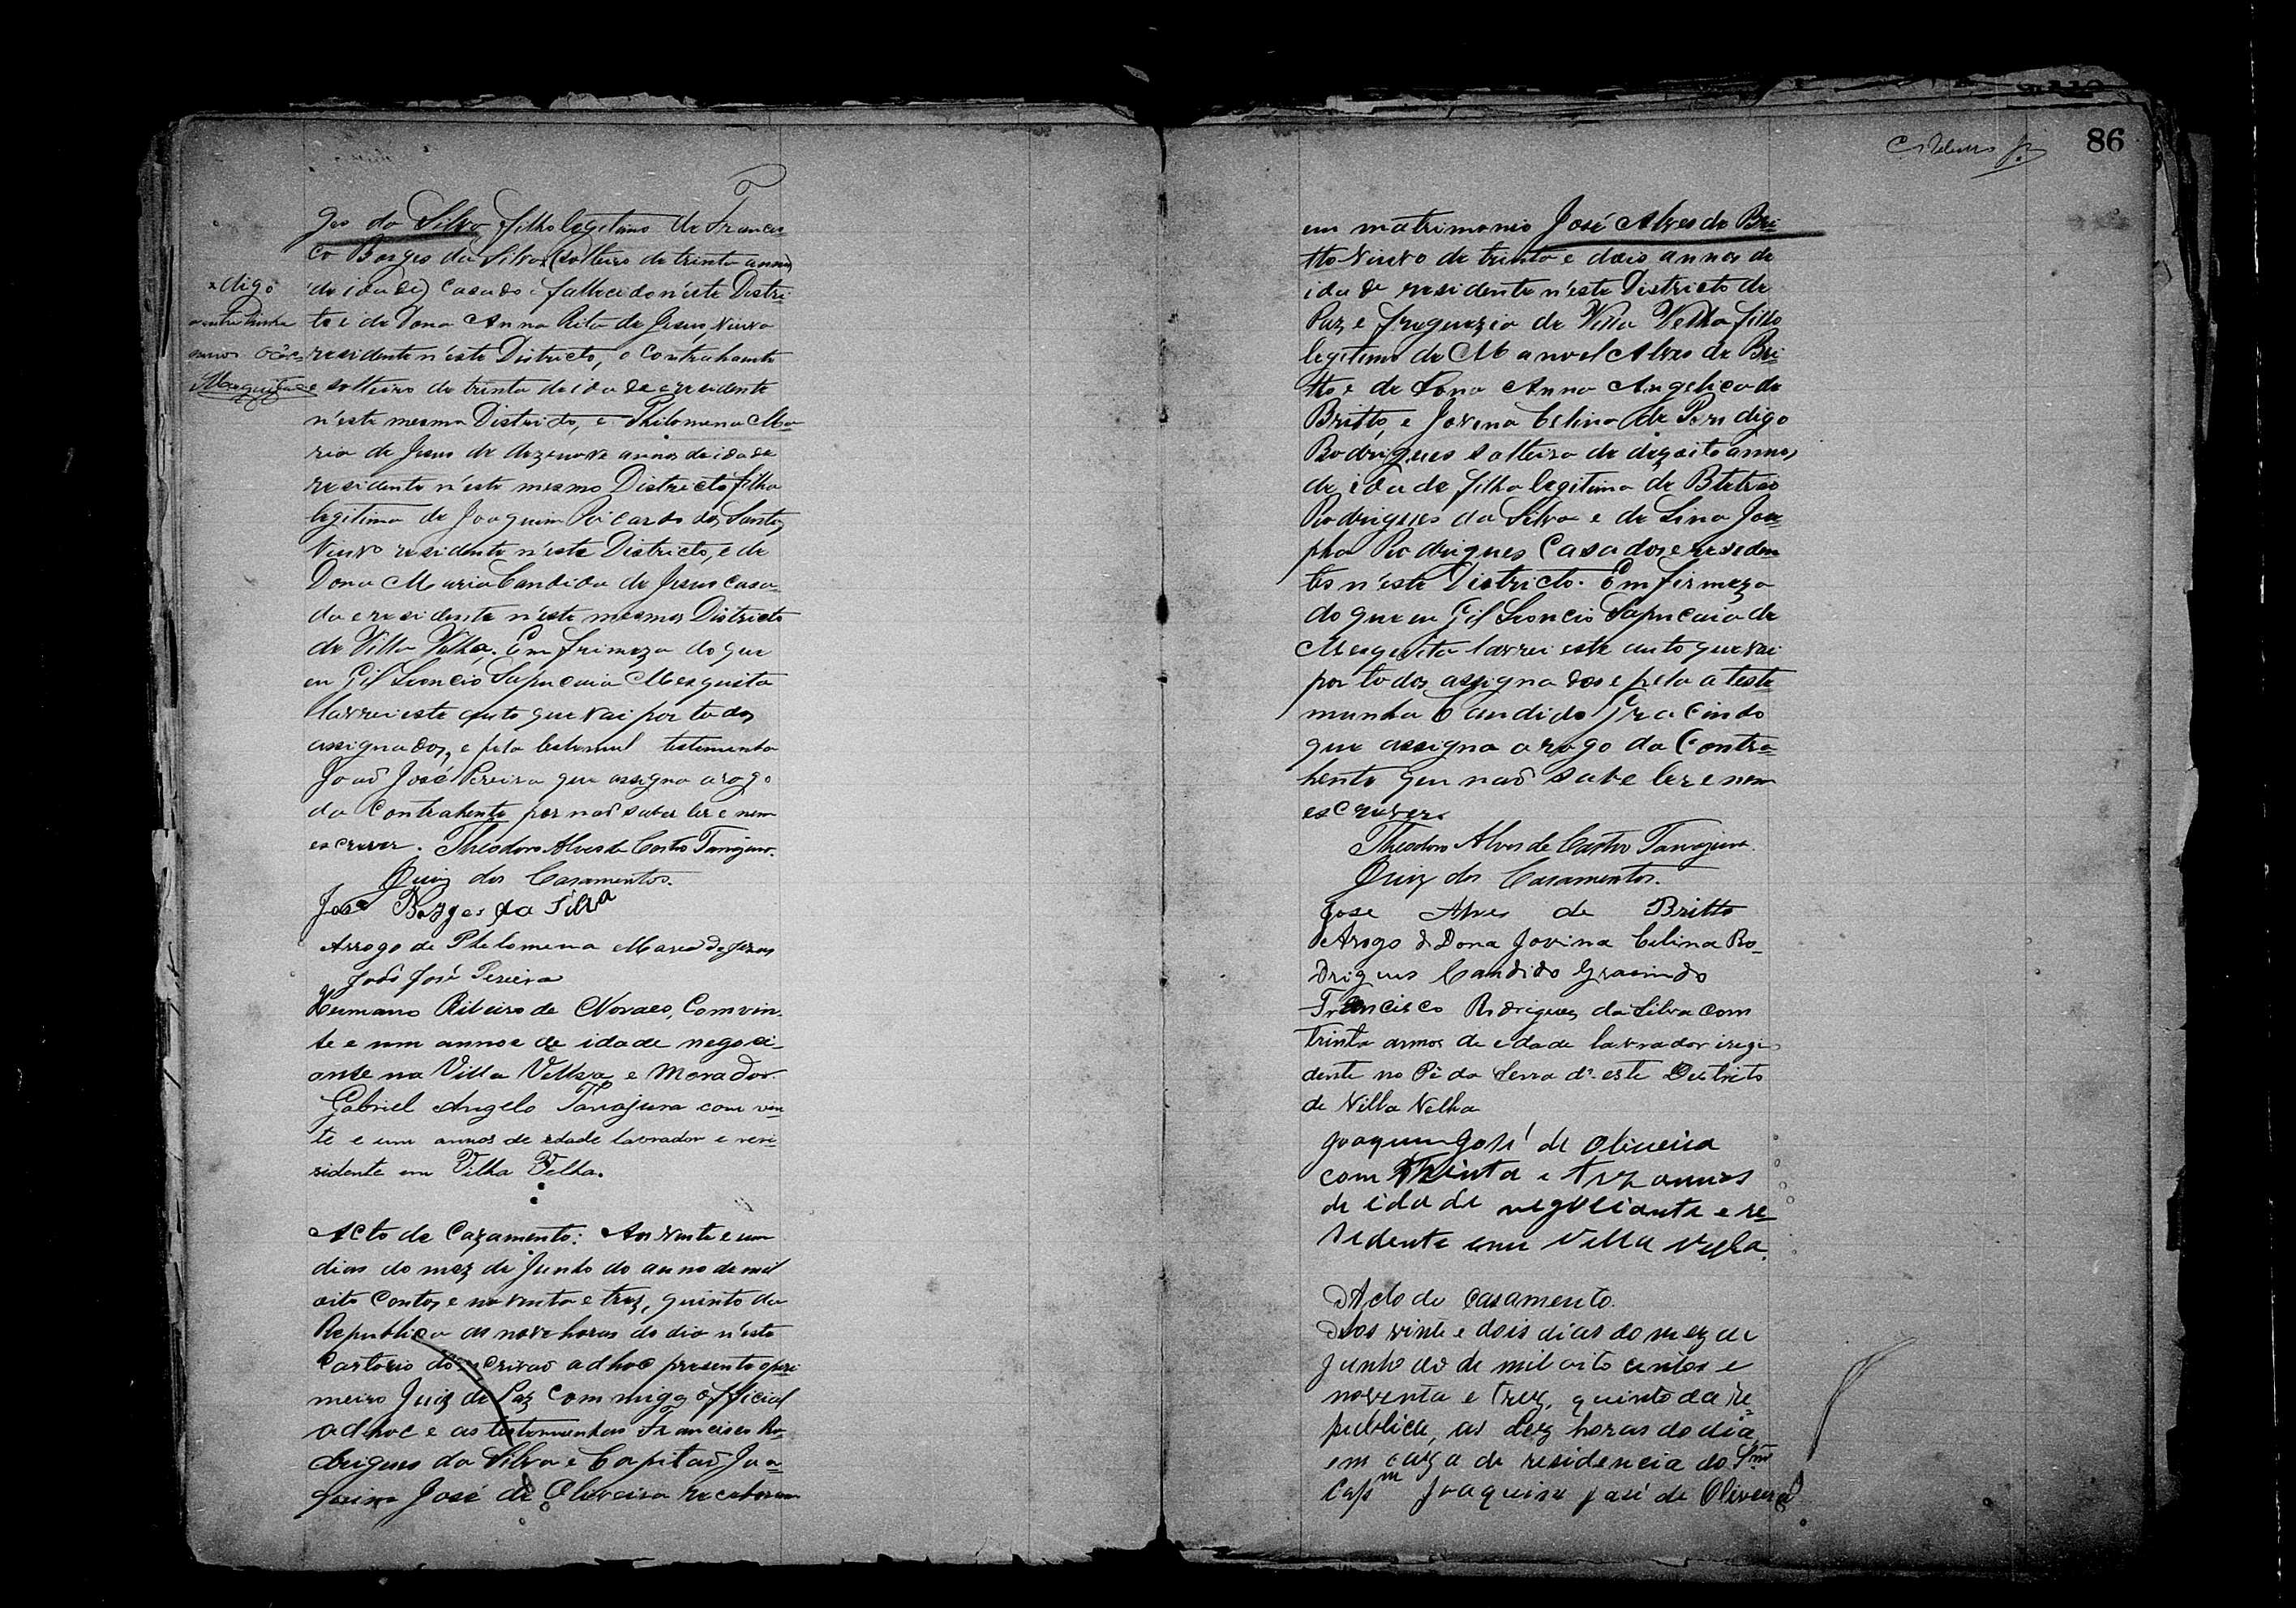 ges da Silva filho legitimo de Francis-
co Borges da Silva (solteiro de trinta annos
de idade) casado e fallecido n'este Distri-
to e de Dona Anna Rita de Jesus, viuva
residente n'este Districto, e contrahente
solteiro de trinta de idade e residente
n'este mesmo Districto, e Philomena Ma-
ria de Jesus de dezenove annos de idade
residente n'este mesmo Districto filha
legitima de Joaquim Ricardo dos Santos
viuvo residente n'este Districto, e de
Dona Maria Candida de Jesus casa-
da e residente n'este mesmo Districto
de Villa Velha. Em firmeza do que
eu Gil Leoncio Sapucaia Mesquita
lavrei este auto que vai por todos
assignados, e pela testemunha
João José Pereira que assigna arogo
da Contrahente por não saber ler e nem
escrever. Theodoro Alves de Castro Tanajura.
Juiz dos Casamentos.
José Borges da Silva
Arrogo de Philomena Maria de Jesus
João José Pereira
Humano Ribeiro de Novaes, com vin-
te e um annos de idade negoci-
ante na Villa Velha e morador.
Gabriel Angelo Tanajura com vin-
te e um annos de edade lavrador e resi-
sidente em Vilha Velha.
Acto de Cazamento: Aos vinte e um
dias do mez de Junho do anno de mil
oito centos e noventa e trez, quinto da
Republica as nove horas do dia n'este
Cartorio do escrivão adhoc presente o pri-
meiro Juiz de Paz commigo official
adhoc e as testemunhas Francisco Ro-
drigues da Silva e Capitão Joa-
quim José de Oliveira receberam
x digo
a entrelinha
Mesquita
86
em matrimonio José Alves de Bri-
tto viuvo de trinta e dois annos de
idade residente n'este Districto de
Paz e freguezia de Villa Velha filho
legitimo de Manoel Alves de Bri-
tto e de Dona Anna Angelica de
Britto, e Jovena Celina de digo
Rodrigues solteira de dezoito annos
de idade filha legitima de
Rodrigues da Silva e de Lina Joze-
pha Rodrigues Casados e residen
tes n'este Districto. Em firmeza
do que eu Gil Leoncio Sapucaia de
Mesquita lavrei este auto que vai
por todos assignados e pela a teste
munha Candido Gracindo
que assigna arogo da Contra-
hente que não sabe ler e nem
escrever.
Theodoro Alves de Castro Tanajura.
Juiz dos Casamentos.
Jose Alves de Britto
Arogo de Dona Jovina Celina Ro-
drigues Candido Gracindo
Francisco Rodrigues da Silva com
trinta annos de edade lavrador e rezi-
dente no Pé da Serra d'este Distrito
de Villa Velha
Joaquim José de Oliveira
com Trinta e trez annos
de idade negociante e re-
sidente em Villa Velha.
Acto de Casamento.
Aos vinte e dois dias do mez de
Junho de mil oito centos e
noventa e trez, quinto da Re-
publica, as dez horas do dia,
em caza de residencia do Snr
Capm Joaquim José de Oliveira